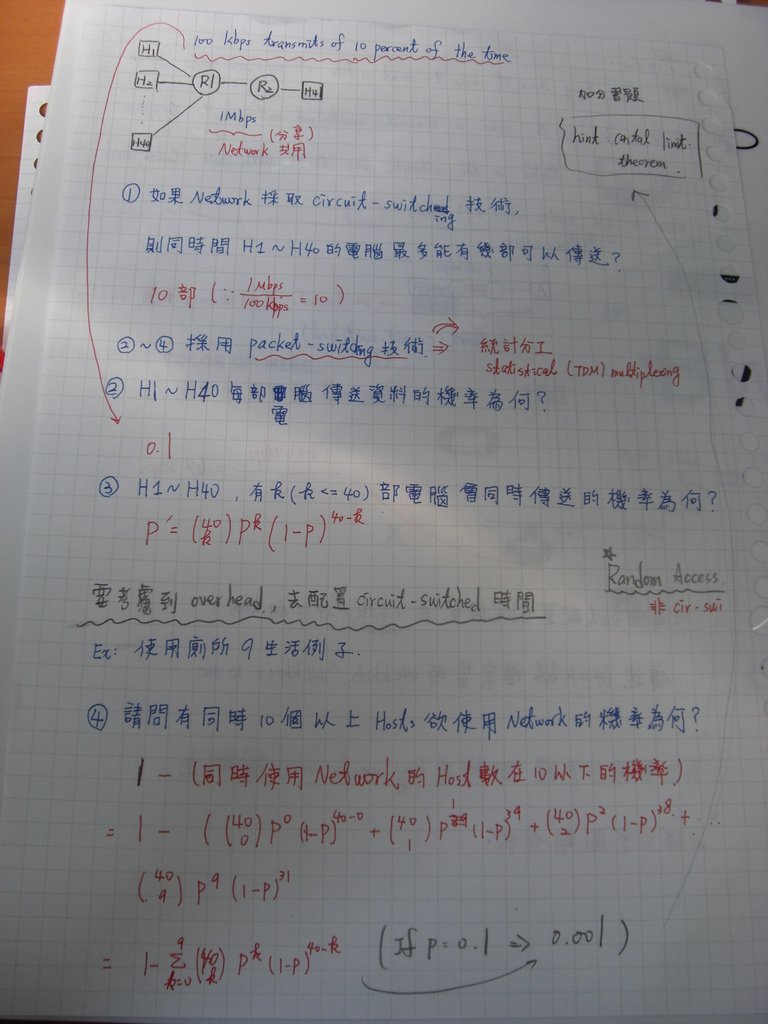 100 kbps transmits of 10 percent of the time
H1
H2
R1
R2
H4
H40
1Mbps
(分享)
Network 共用
加分習題
hint: cental limit
theorem.
① 如果 Network 採取 circuit-switching 技術,
則同時間 H1~H40 的電腦最多能有幾部可以傳送?
10 部 (∵ 1Mbps/100kbps = 10)
②~④ 採用 packet-switching 技術 ⇒ 統計分工
statistical (TDM) multiplexing
② H1~H40 每部電腦傳送資料的機率為何?
0.1
③ H1~H40, 有k(k<=40)部電腦會同時傳送的機率為何?
P' = (40 k) P^k (1-P)^40-k
* Random Access.
非 cir-swi
要考慮到 overhead, 去配置 circuit-suitched 時間
Ex: 使用廁所 9 生活例子.
④ 請問有同時10個以上 Hosts 欲使用 Network 的機率為何?
1 - (同時使用 Network 的 Host 數在10以下的機率)
= 1 - ( (40 0) P^0 (1-P)^40-0 + (40 1) P^1 (1-P)^39 + (40 2) P^2 (1-P)^38 + ...
(40 9) P^9 (1-P)^31
= 1 - Σ k=0 9 (40 k) P^k (1-P)^40-k (If P=0.1 ⇒ 0.001)